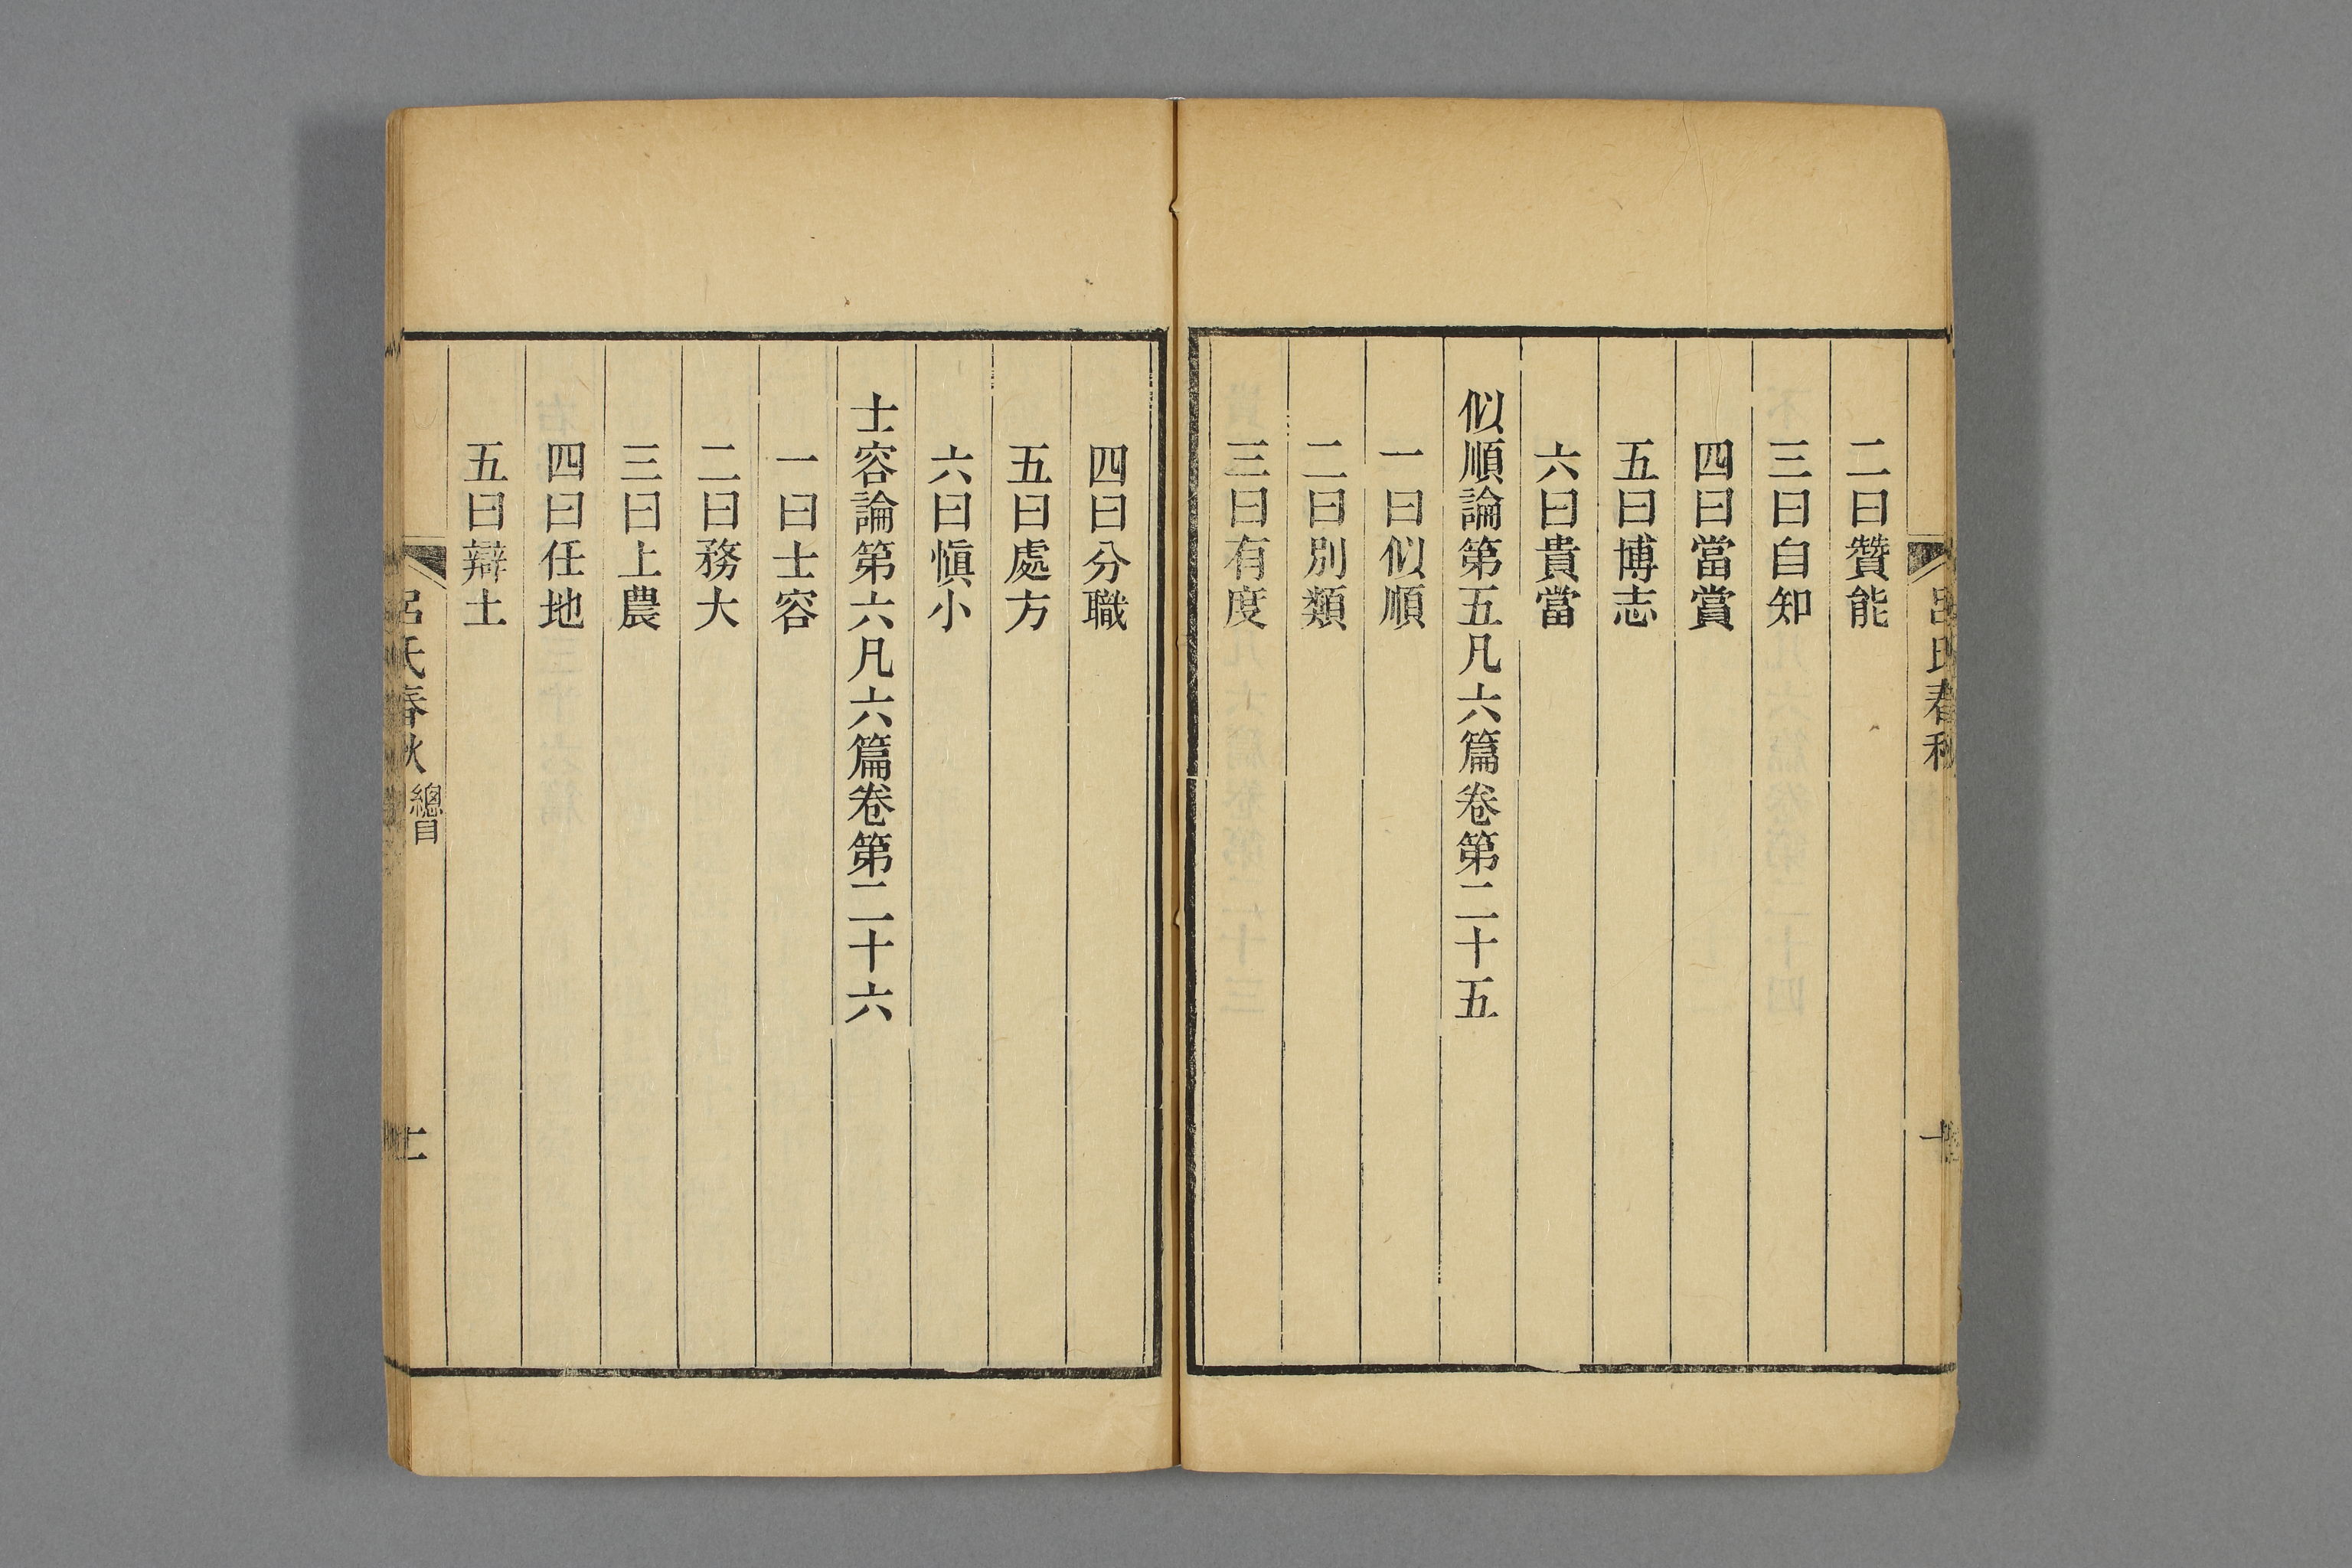 呂氏春秋
二曰贊能
三曰自知
四曰當賞
五曰博志
六曰貴當
似順論第五凡六篇卷第二十五
一曰似順
二曰別類
三曰有度
四曰分職
五曰處方
六曰愼小
士容論第六凡六篇卷第二十六
一曰士容
二曰務大
三曰上農
四曰任地
五曰辯土
呂氏春秋 總目